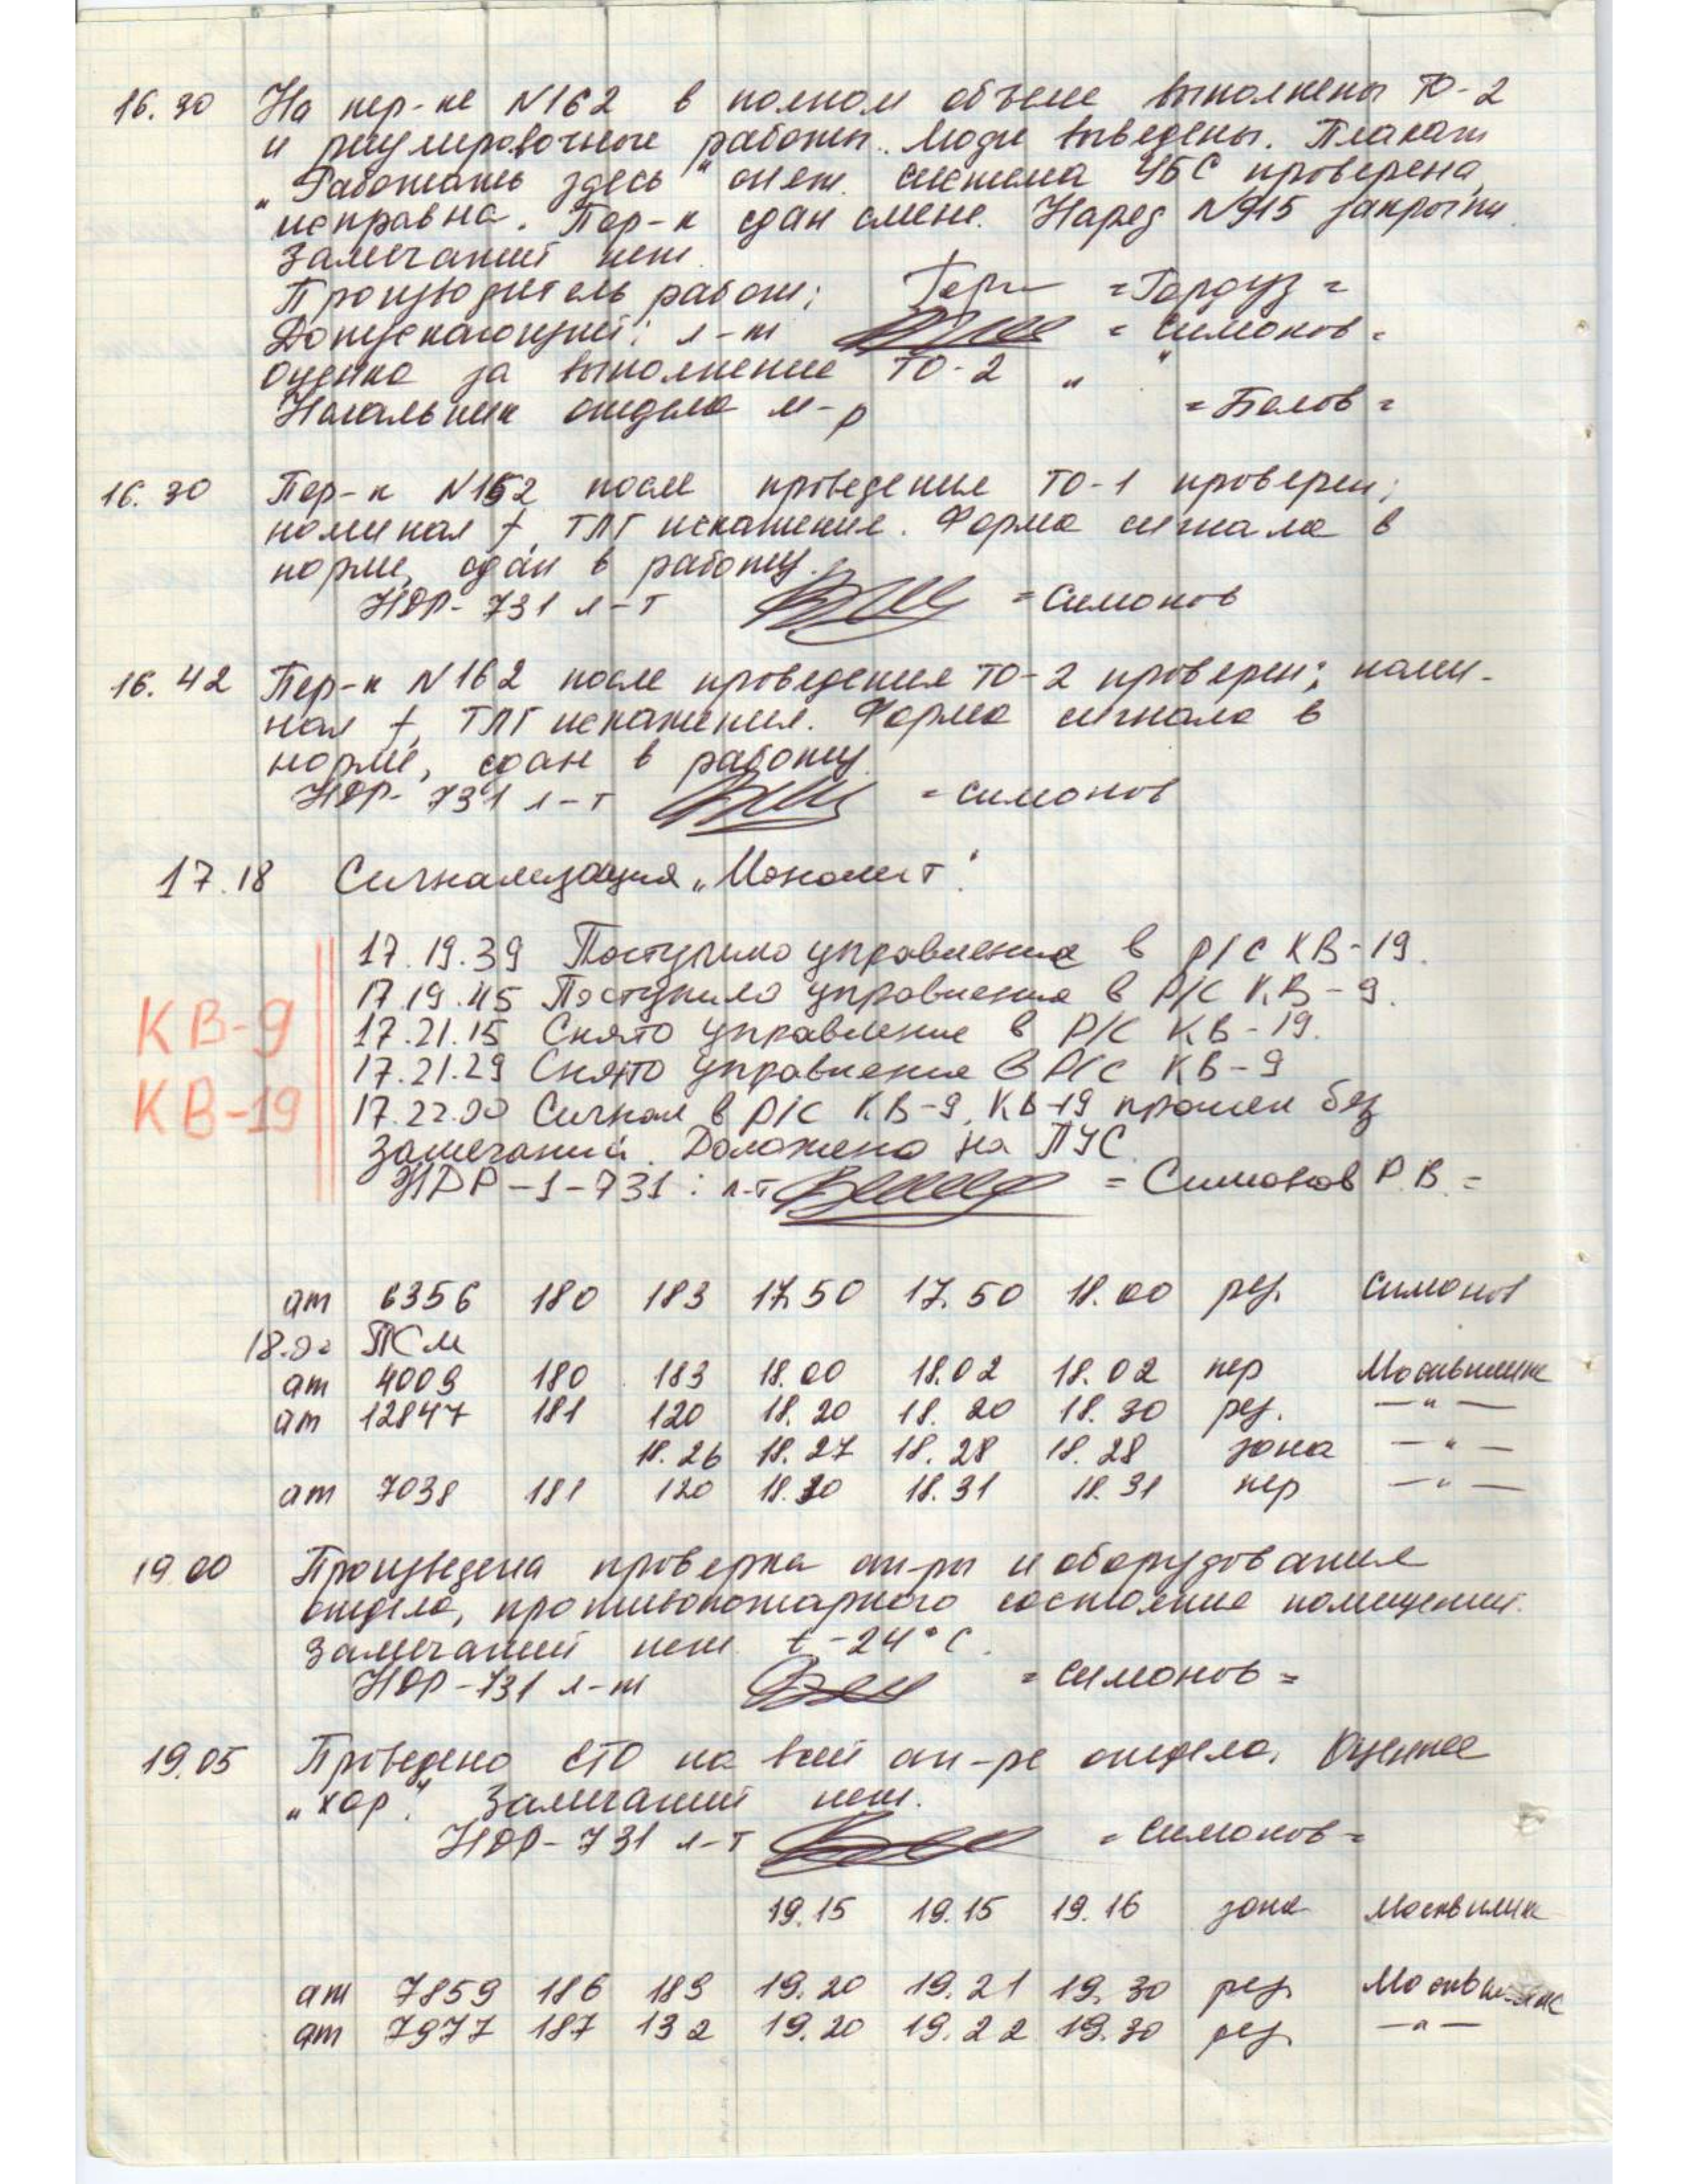 16.30 На пер-ке N162 в полном объеме выполнены ТО-2
и регулировочные работы. Люди выведены. Плакат
„Работать здесь" снят. Система УБС проверена,
исправна. Пер-к сдан смене. Наряд N915 закрыт.
Замечаний нет.
Производитель работ: =Гордуз=
Допускающий: л-т =Симонов=
Оценка за выполнение ТО-2 „ "
Начальник отдела м-р =Белов=
16.30 Пер-к N152 после проведения ТО-1 проверен;
номинал f, ТЛГ искажения. Форма сигнала в
норме, сдан в работу.
НДР-731 л-т =Симонов
16.42 Пер-к N162 после проведения ТО-2 проверен; номи-
нал f, ТЛГ искажения. Форма сигнала в
норме, сдан в работу.
НДР-731 л-т =Симонов
17.18 Сигнализация „Монолит".
17.19.39 Поступило управление в р/с КВ-19.
17.19.45 Поступило управление в р/с КВ-9.
КВ-9
17.21.15 Снято управление в р/с КВ-19.
17.21.29 Снято управление в р/с КВ-9
КВ-19
17.22.00 Сигнал в р/с КВ-9, КВ-19 прошел без
замечаний. Доложено на ПУС.
НДР-1-731: л-т =Симонов Р.В.=
ат 6356 180 183 17.50 17.50 18.00 рез. Симонов
18.00 ПСм
ат 4009 180 183 18.00 18.02 18.02 пер
ат 12847 181 120 18.20 18.20 18.30 рез. —"—
18.26 18.27 18.28 18.28 зона —"—
ат 7038 181 120 18.30 18.31 18.31 пер —"—
19.00 Произведена проверка ап-ры и оборудования
отдела, противопожарного состояние помещений.
Замечаний нет. t-24°С.
НДР-731 л-т =Симонов=
19.05 Проведено ЕТО на всей ап-ре отдела. Оценка
„хор". Замечаний нет.
НДР-731 л-т =Симонов=
19.15 19.15 19.16 зона
ат 7859 186 189 19.20 19.21 19.30 рез.
ат 7977 187 132 19.20 19.22 19.30 рез. —"—